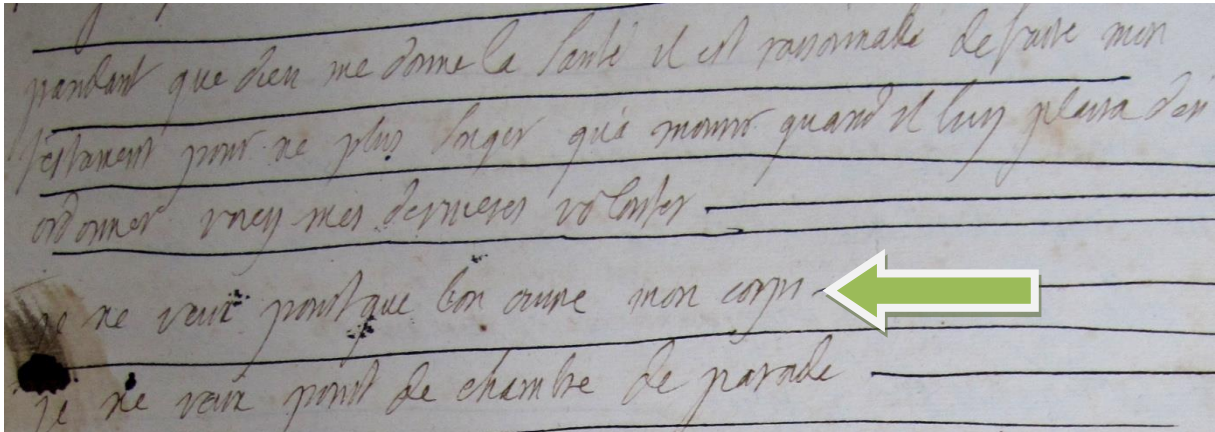 pandant que dieu me donne la santé il est raisonnable de faire mon
testament pour ne plus songer qu'a mourir quand il luy plaira d'en
ordonner voicy mes dernieres volontes
je ne veux point que l'on ouvre mon corps
je ne veux point de chambre de parade